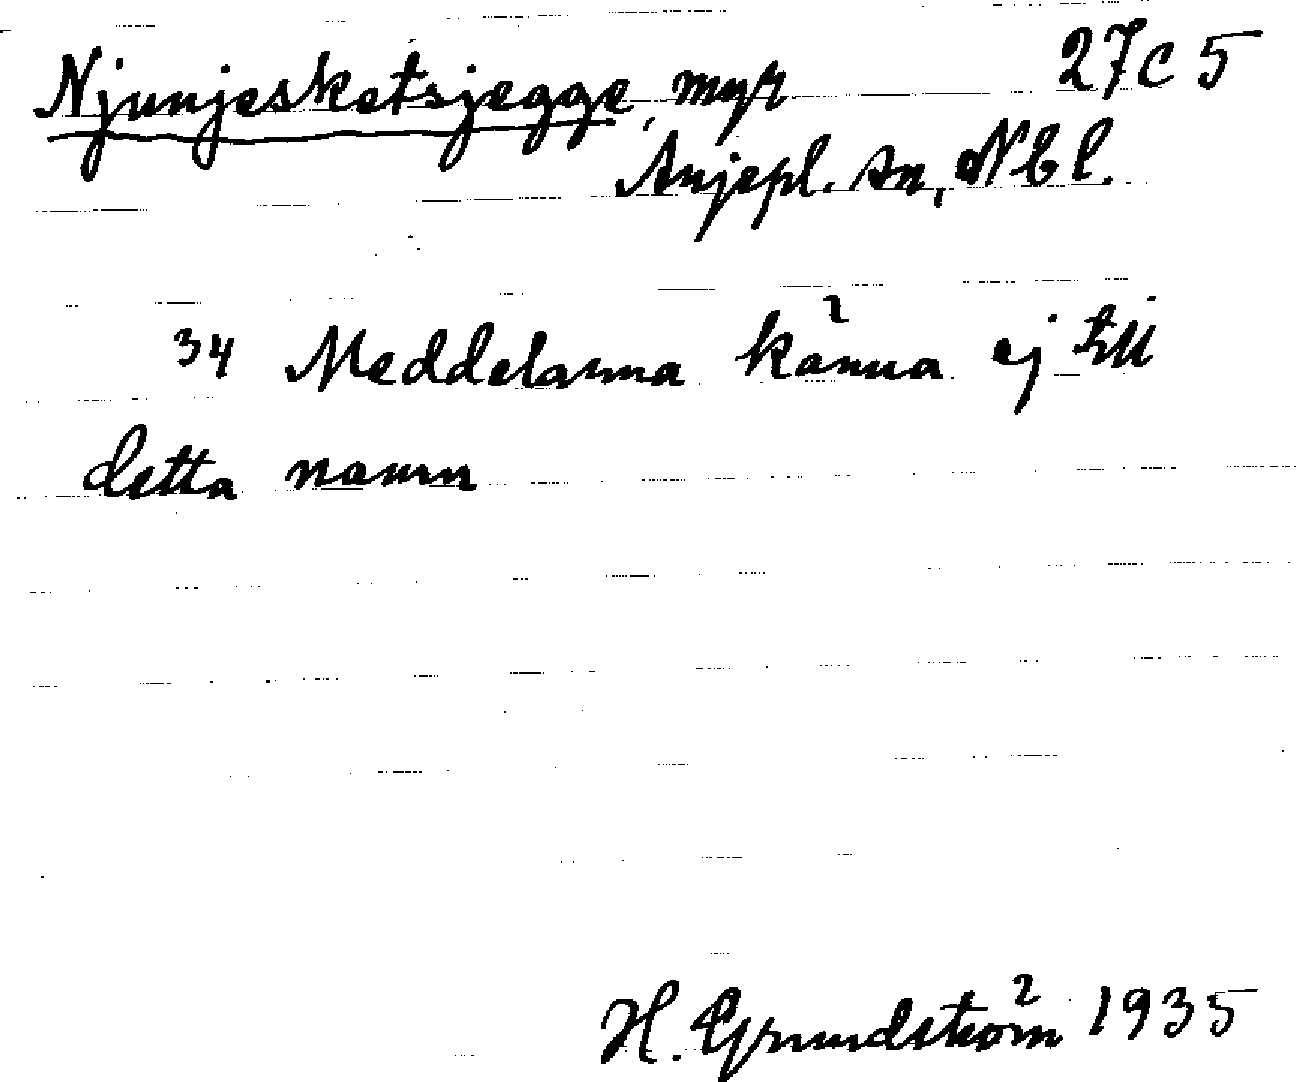 Njunjesketsjegge, myr 27C5
Arjepl. sn, Nbl.
34 Meddelarna känna ej till
detta namn
H. Grundström 1935